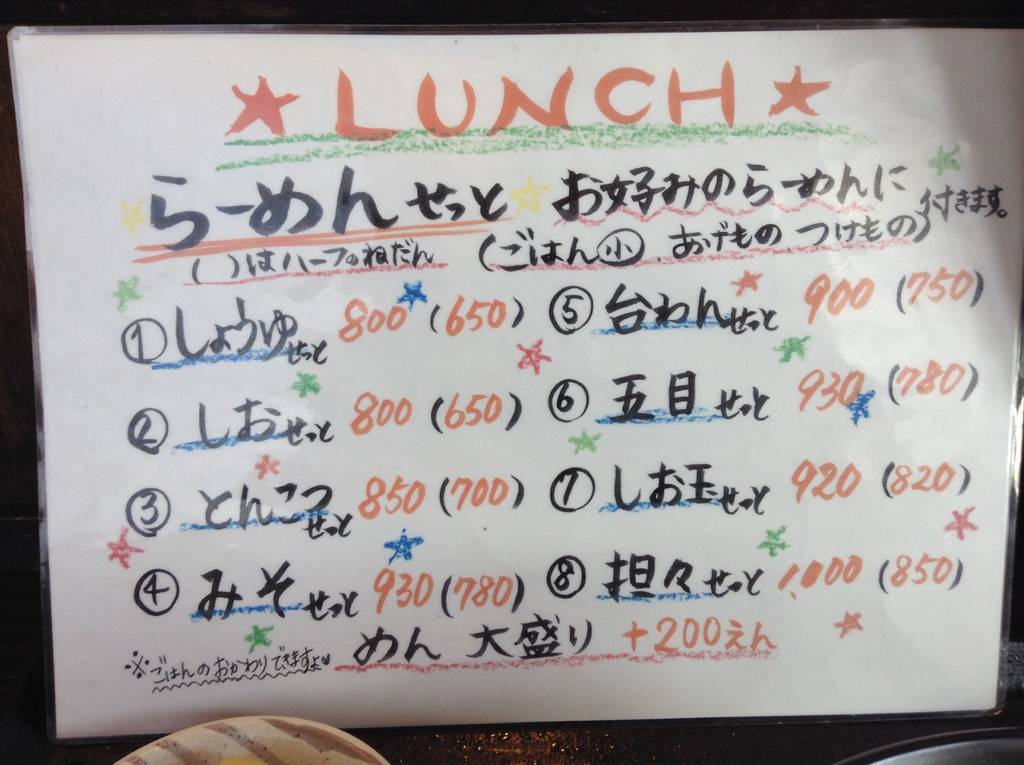 ★LUNCH★
らーめんせっと お好みのらーめんに付きます。
( )はハーフのねだん (ごはん㊥小 あげもの つけもの)
①しょうゆせっと 800 (650)
②しおせっと 800 (650)
③とんこつせっと 850 (700)
④みそせっと 930 (780)
⑤台わんせっと 900 (750)
⑥五目せっと 930 (780)
⑦しお玉せっと 920 (820)
⑧担々せっと 1,000 (850)
めん 大盛り +200えん
※ごはんのおかわりできますよ♥